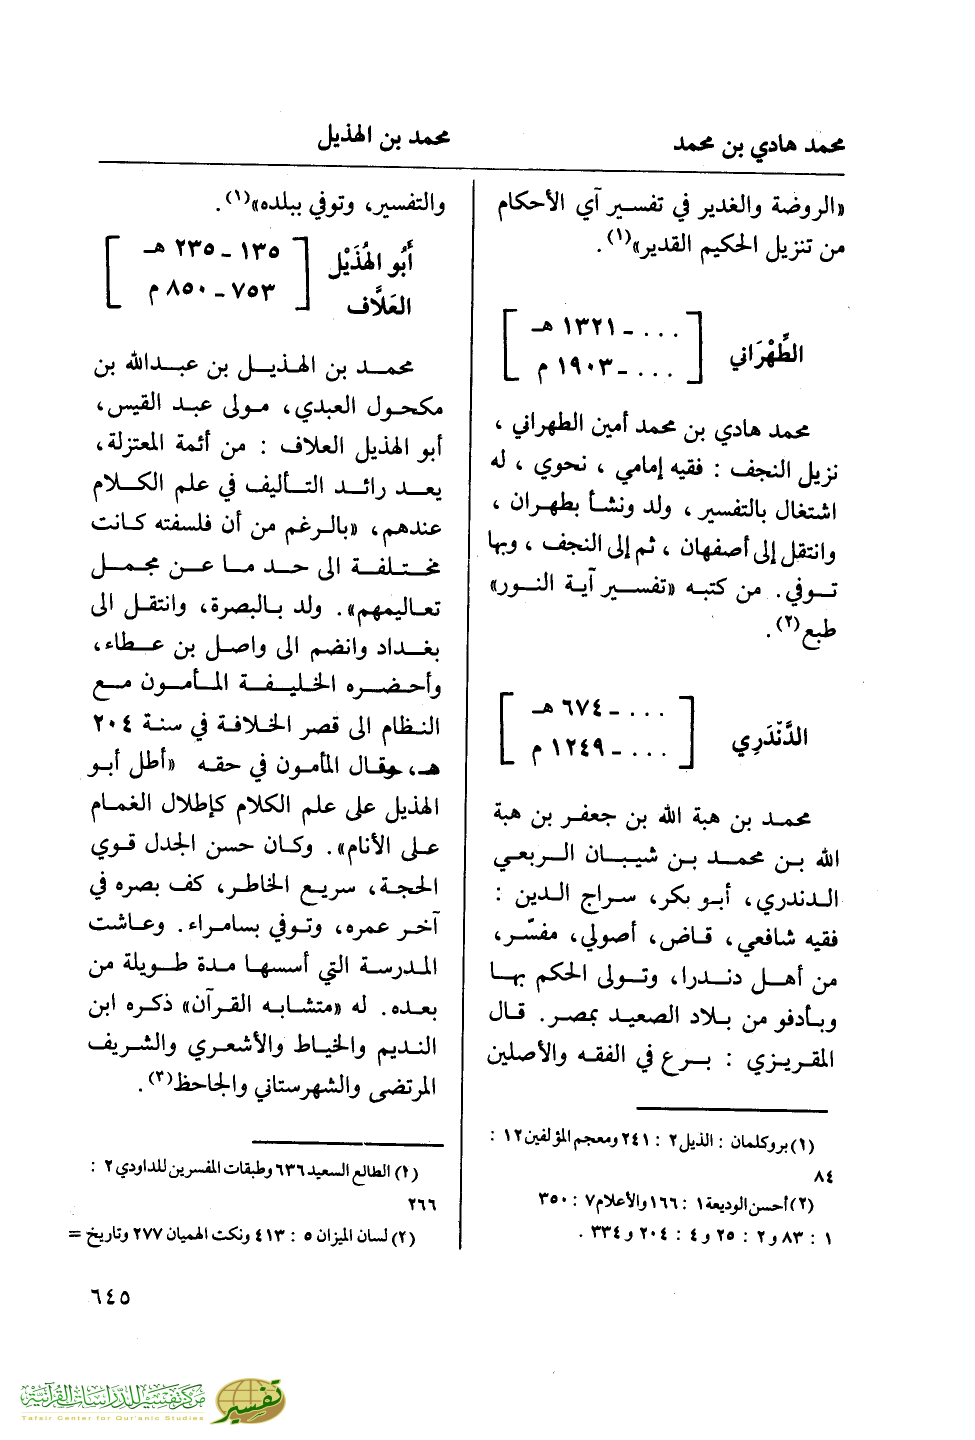 محمد هادي بن محمد
محمد بن الهذيل
«الروضة والغدير في تفسير آي الأحكام
من تنزيل الحكيم القدير»(١).
الطِّهْرَاني
[... ـ ١٣٢١ هـ
... ـ ١٩٠٣ م]
محمد هادي بن محمد أمين الطهراني ،
نزيل النجف : فقيه إمامي ، نحوي ، له
اشتغال بالتفسير ، ولد ونشأ بطهران ،
وانتقل إلى أصفهان ، ثم إلى النجف ، وبها
توفي. من كتبه «تفسير آية النور»
طبع(٢).
الدَّنْدَرِي
[... ـ ٦٧٤ هـ
... ـ ١٢٤٩ م]
محمد بن هبة الله بن جعفر بن هبة
الله بن محمد بن شيبان الربعي
الدندري، أبو بكر، سراج الدين :
فقيه شافعي، قاض، أصولي، مفسّر،
من أهل دندرا، وتولى الحكم بها
وبأدفو من بلاد الصعيد بمصر. قال
المقريزي : برع في الفقه والأصلين
(١) بروكلمان : الذيل ٢ : ٢٤١ ومعجم المؤلفين ١٢ :
٨٤
(٢) أحسن الوديعة ١ : ١٦٦ والأعلام ٧ : ٣٥٠
١ : ٨٣ و ٢ : ٢٥ و ٤ : ٢٠٤ و ٣٣٤ .
والتفسير، وتوفي ببلده»(١).
أَبُو الهُذَيْل
العَلاَّف
[١٣٥ ـ ٢٣٥ هـ
٧٥٣ ـ ٨٥٠ م]
محمد بن الهذيل بن عبدالله بن
مكحول العبدي، مولى عبد القيس،
أبو الهذيل العلاف : من أئمة المعتزلة،
يعد رائد التأليف في علم الكلام
عندهم، «بالرغم من أن فلسفته كانت
مختلفة الى حد ما عن مجمل
تعاليمهم». ولد بالبصرة، وانتقل الى
بغداد وانضم الى واصل بن عطاء،
وأحضره الخليفة المأمون مع
النظام الى قصر الخلافة في سنة ٢٠٤
هـ، وقال المأمون في حقه «أطل أبو
الهذيل على علم الكلام كإطلال الغمام
على الأنام». وكان حسن الجدل قوي
الحجة، سريع الخاطر، كف بصره في
آخر عمره، وتوفي بسامراء. وعاشت
المدرسة التي أسسها مدة طويلة من
بعده. له «متشابه القرآن» ذكره ابن
النديم والخياط والأشعري والشريف
المرتضى والشهرستاني والجاحظ(٢).
(١) الطالع السعيد ٦٣٦ وطبقات المفسرين للداودي ٢ :
٢٦٦
(٢) لسان الميزان ٥ : ٤١٣ ونكت الهميان ٢٧٧ وتاريخ =
٦٤٥
مركز تفسير للدراسات القرآنية
Tafsir Center for Qur'anic Studies
تفسير